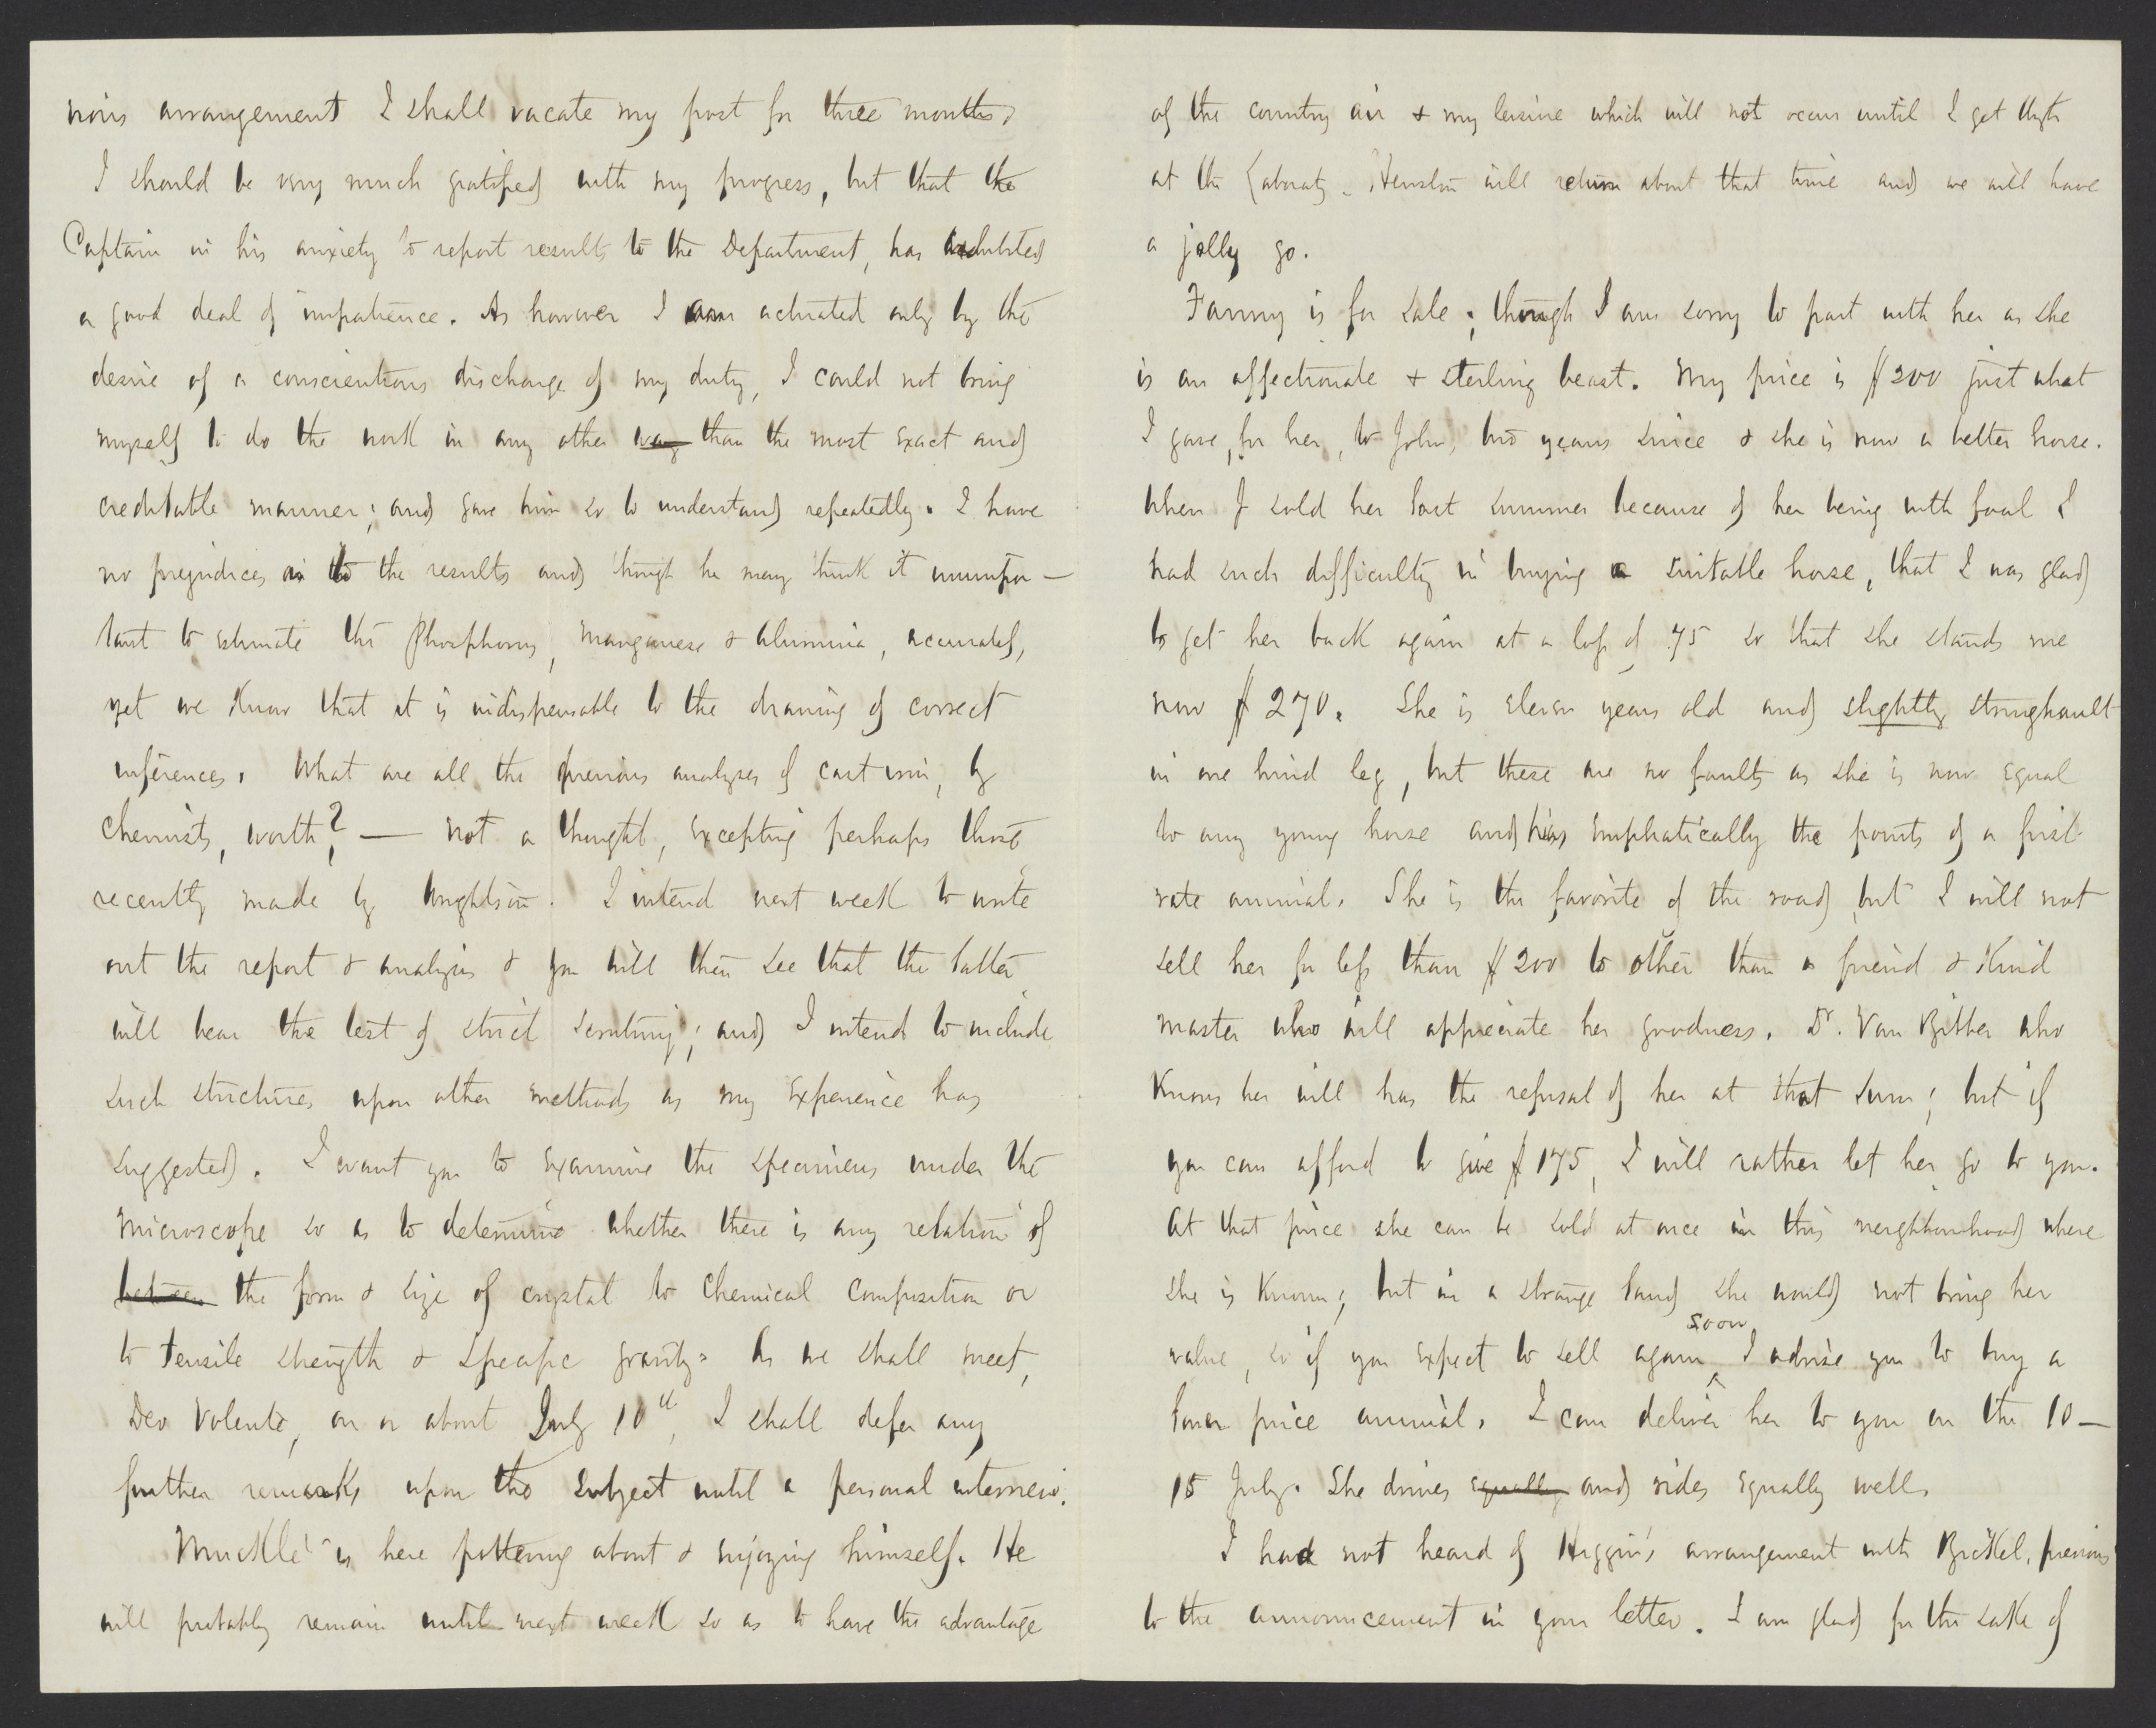 nois arrangement I shall vacate my post for three months.
I should be very much gratified with my progress, but that the
Captain in his anxiety to report results to the Department, has exhibited
a good deal of impatience. As however I am actuated only by the
desire of a conscientious discharge of my duty, I could not bring
myself to do the work in any other way than the most exact and
creditable manner; and gave him so to understand repeatedly. I have
no prejudices as to the results and though he may think it unimpor-
tant to estimate the Phosphorus, manganese & alumina, accurately,
yet we know that it is indispensable to the drawing of correct
inferences. What are all the previous analyses of cast iron, by
Chemists, worth? — not a thought, excepting perhaps those
recently made by Wrightson. I intend next week to write
out the report & analysis & you will then see that the latter
will bear the test of strict scrutiny; and I intend to include
such strictures upon other methods as my experience has
suggested. I want you to examine the specimens under the
microscope so as to determine whether there is any relation of
between the form & size of crystal to chemical composition or
to tensile strength & specific gravity. As we shall meet,
Deo Volente, on or about July 10th, I shall defer any
further remarks upon the subject until a personal interview.
Muckle is here pottering about & enjoying himself. He
will probably remain until next week so as to have the advantage
of the country air & my leisure which will not occur until I get thro
at the Laboraty. Henston will return about that time and we will have
a jolly go.
Fanny is for sale; though I am sorry to part with her as she
is an affectionate & sterling beast. My price is $200 just what
I gave, for her, to John, two years since & she is now a better horse.
When I sold her last summer because of her being with foal I
had such difficulty in buying a suitable horse, that I was glad
to get her back again at a loss of 75 so that she stands me
now $270. She is eleven years old and slightly stringhault
in one hind leg, but these are no faults as she is now equal
to any young horse and has emphatically the points of a first
rate animal. She is the favorite of the road, but I will not
sell her for less than $200 to other than a friend & kind
master who will appreciate her goodness. Dr. Van Bibber who
knows her will has the refusal of her at that sum; but if
you can afford to give $175, I will rather let her go to you.
At that price she can be sold at once in this neighbourhood where
she is known; but in a strange land she would not bring her
value, so if you expect to sell again soon I advise you to buy a
lower price animal. I can deliver her to you on the 10—
15 July. She drives equally and rides equally well.
I had not heard of Higgin's arrangement with Bickel, previous
to the announcement in your letter. I am glad for the sake of